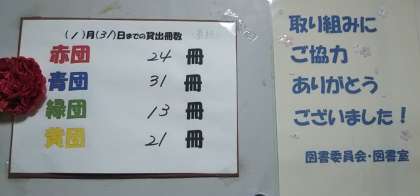 (1)月(31)日までの貸出冊数
赤団 24 冊
青団 31 冊
緑団 13 冊
黄団 21 冊
取り組みに
ご協力
ありがとう
ございました！
図書委員会・図書室